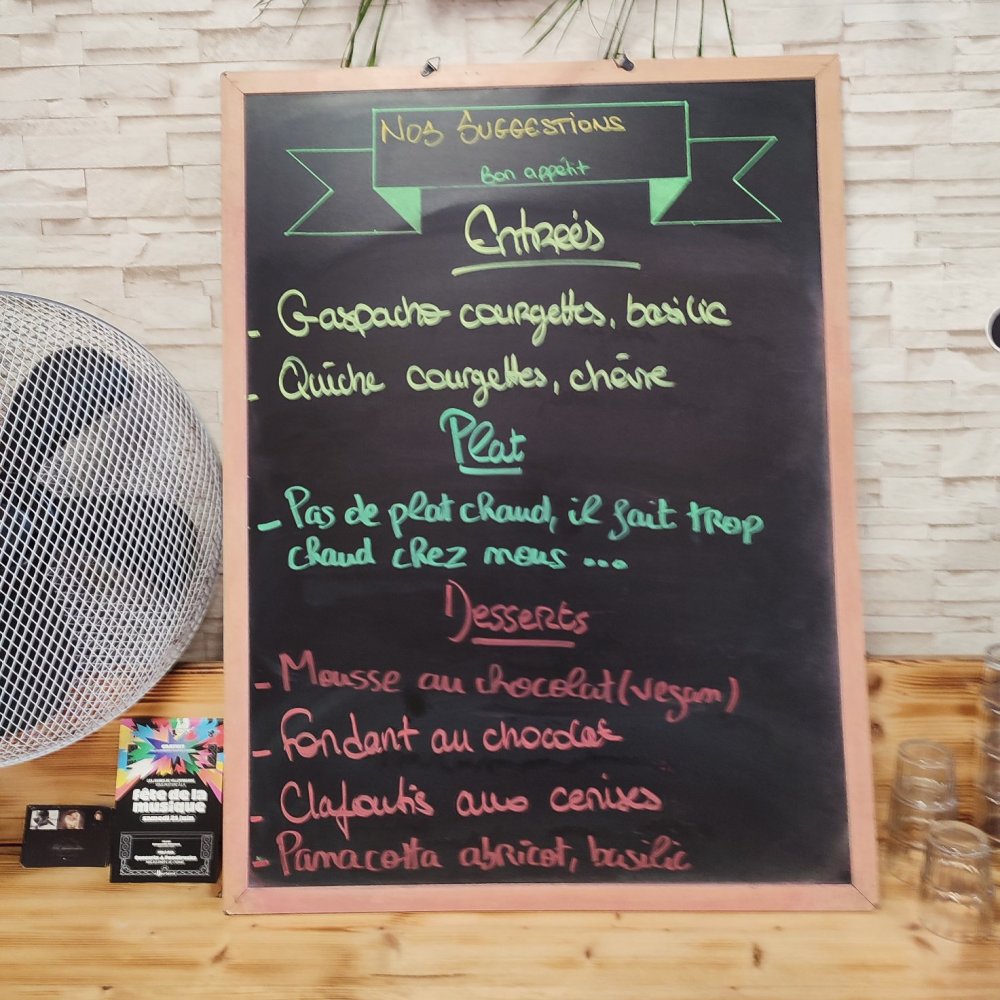 Nos Suggestions
Bon appétit
Entrées
- Gaspacho courgettes, basilic
- Quiche courgettes, chèvre
Plat
- Pas de plat chaud, il fait trop
chaud chez nous ...
Desserts
- Mousse au chocolat (vegan)
- Fondant au chocolat
- Clafoutis aux cerises
- Panacotta abricot, basilic
fête de la
musique
samedi 21 juin